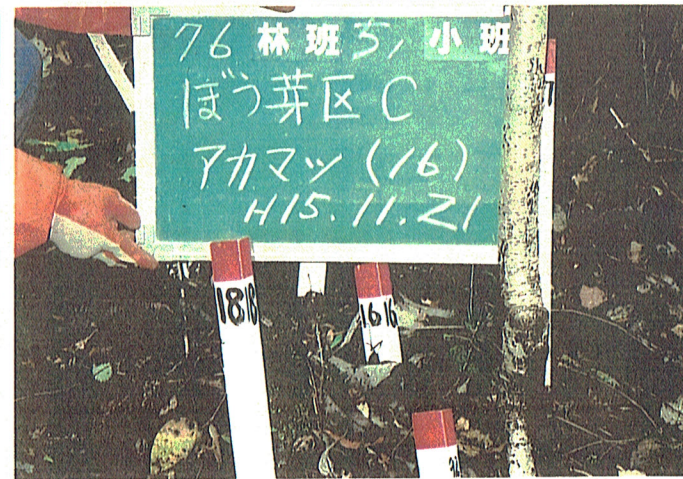 76 林班 ろ, 小班
ぼう芽区 C
アカマツ (16)
H15.11.21
18 18
16 16